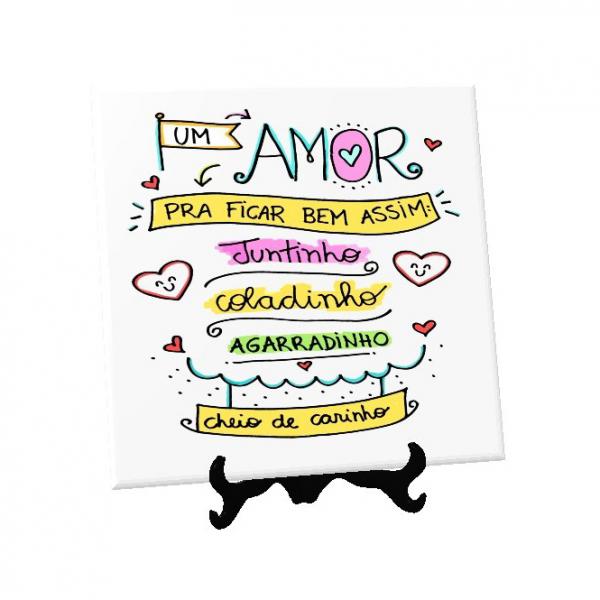 UM AMOR
PRA FICAR BEM ASSIM:
Juntinho
coladinho
AGARRADINHO
cheio de carinho